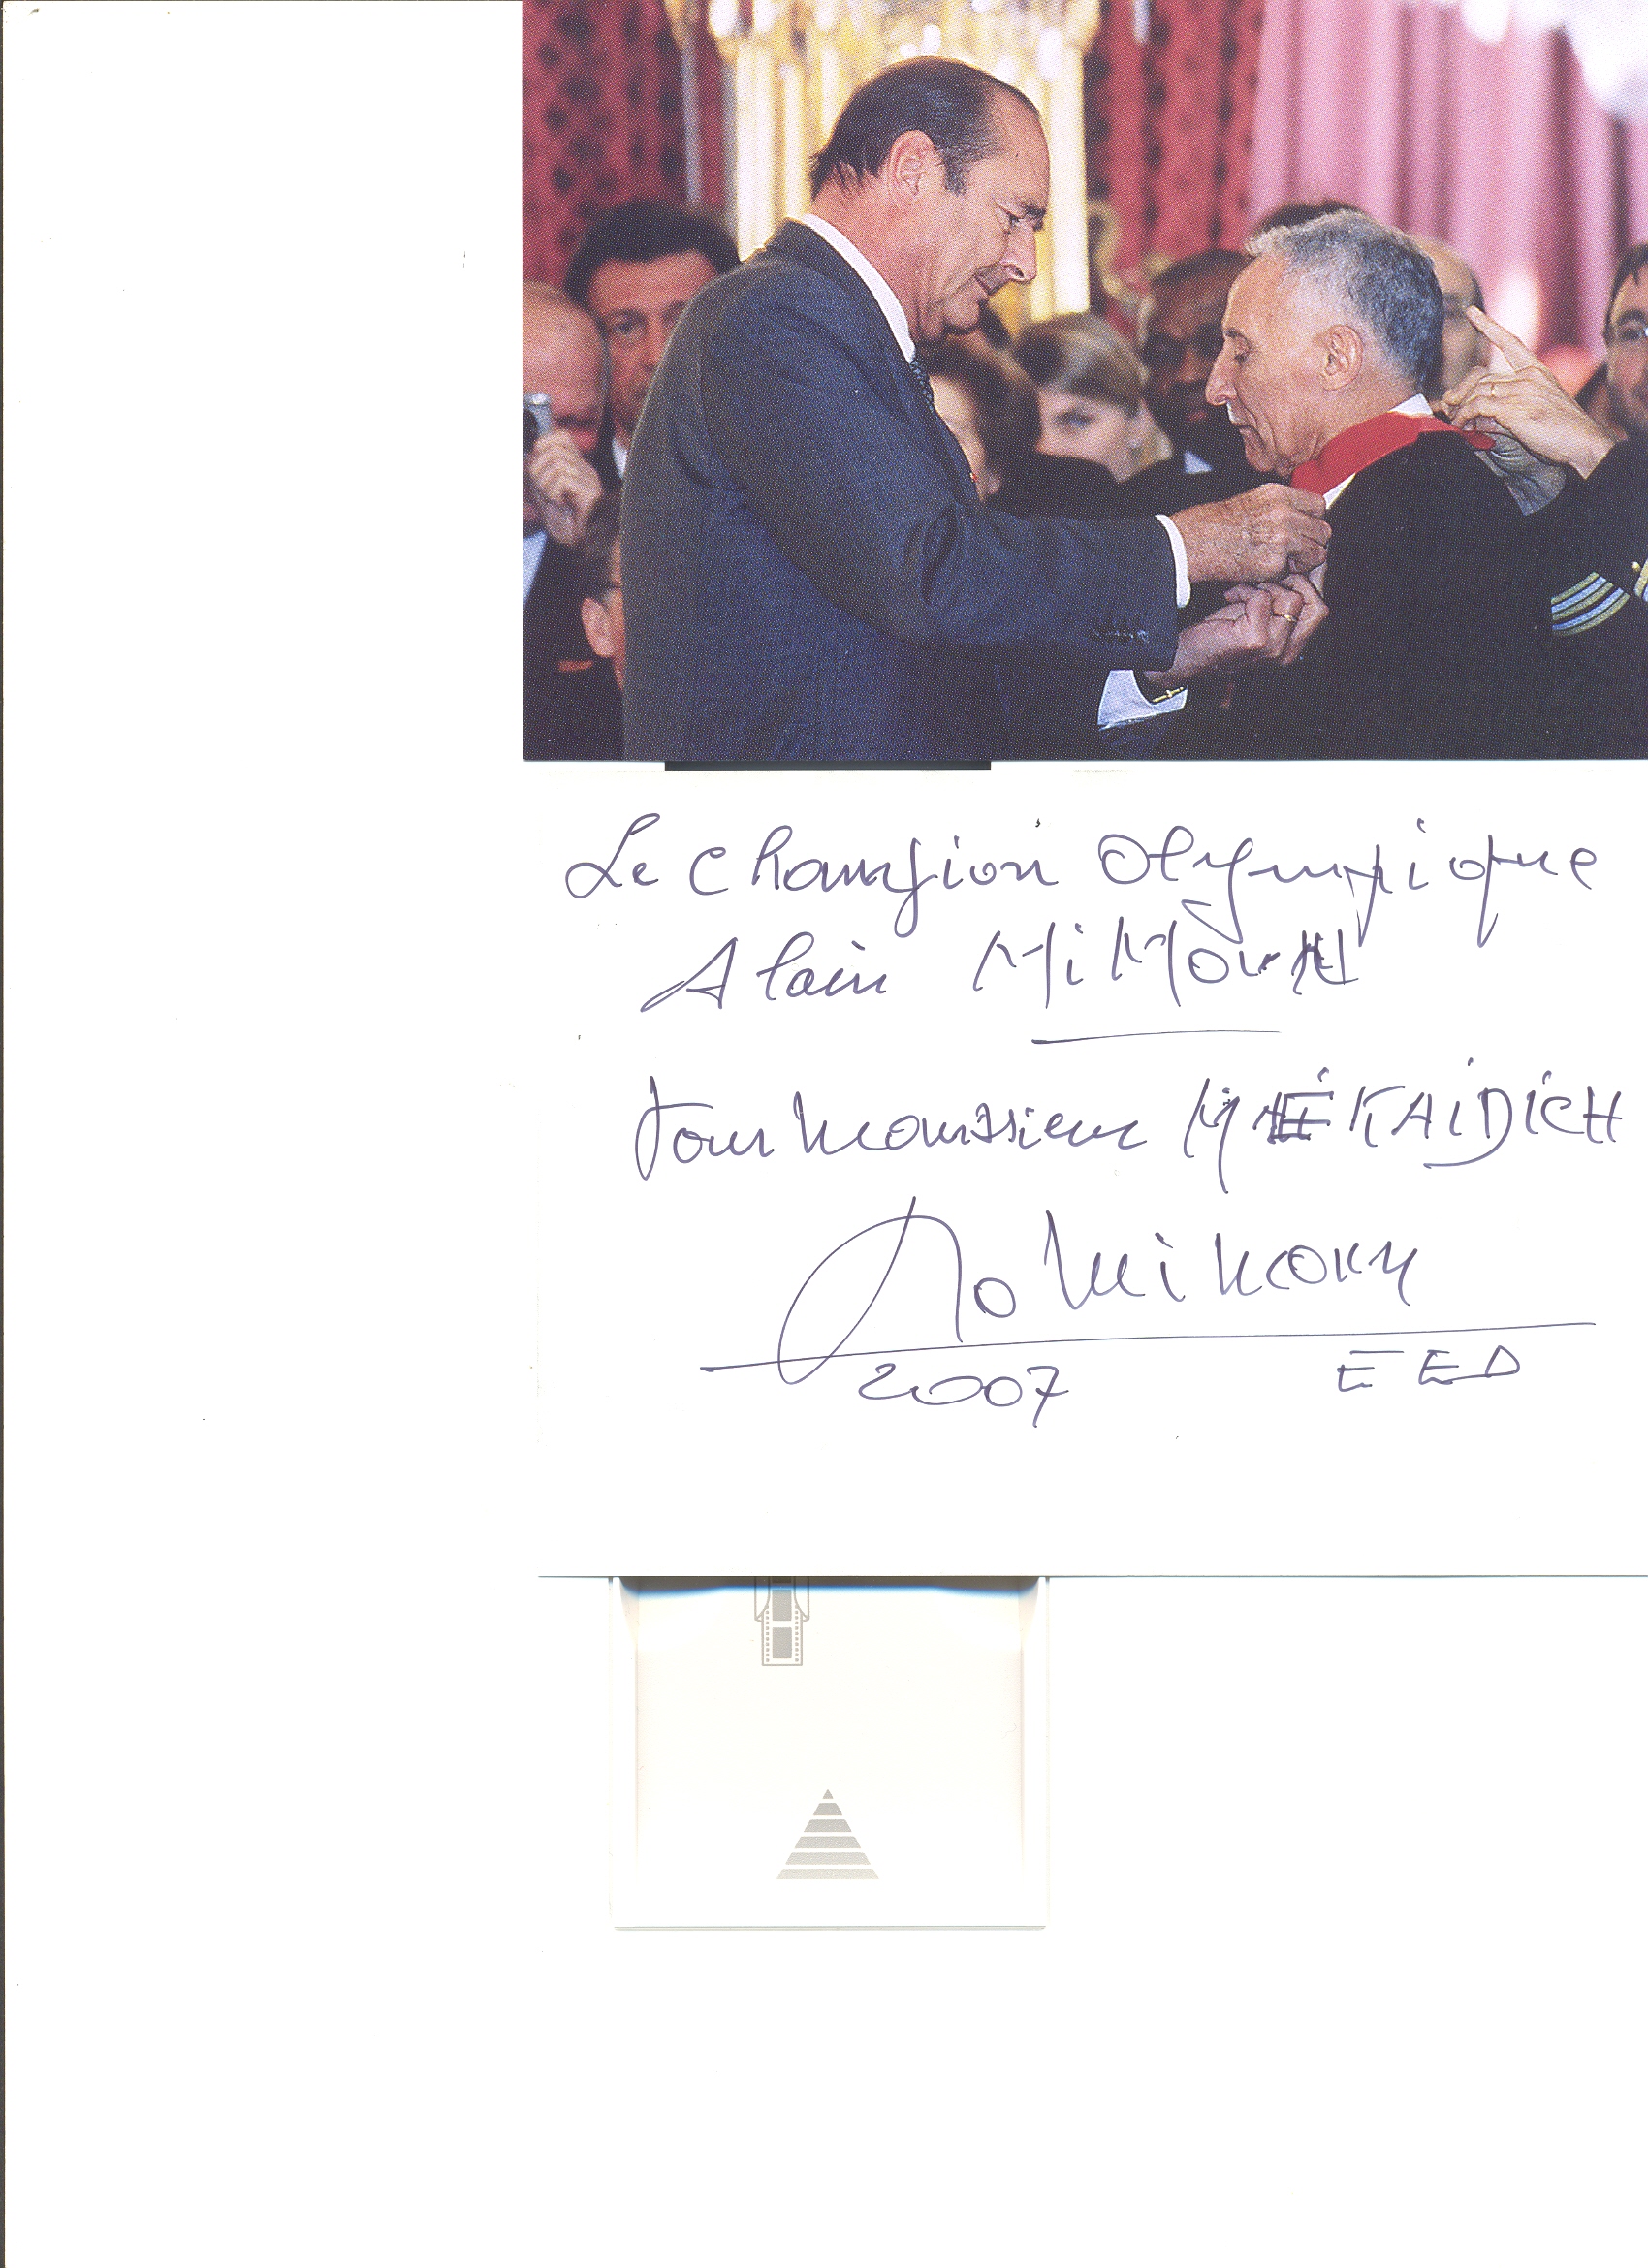 Le Champion Olympique
Alain MiMOUN
Pour Monsieur MÉKAIDICH
Mimoun
2007